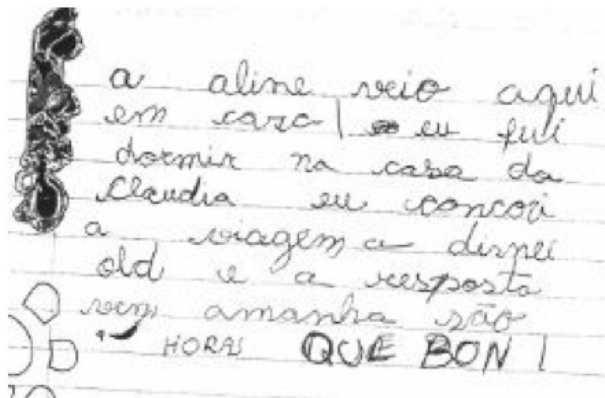 a aline veio aqui
em casa | eu fui
dormir na casa da
Claudia eu concori
a viagem a disnei
old e a resposta
vem amanha são
HORAS QUE BON!